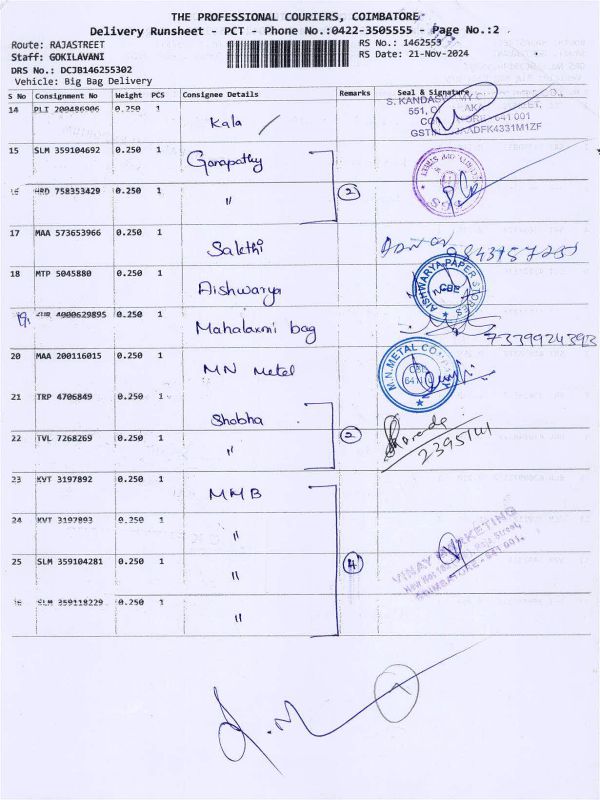 THE PROFESSIONAL COURIERS, COIMBATORE
Delivery Runsheet - PCT - Phone No.:0422-3505555 - Page No.:2
Route: RAJASTREET RS No.: 1462553
Staff: GOKILAVANI RS Date: 21-Nov-2024
DRS No.: DCJB146255302
Vehicle: Big Bag Delivery
S No Consignment No Weight PCS Consignee Details Remarks Seal & Signature
14 PLI 200486906 0.250 1 Kala
15 SLM 359104692 0.250 1 Ganapathy
16 HRD 758353429 0.250 1 " 2
17 MAA 573653966 0.250 1 Sakthi
18 MTP 5045880 0.250 1 Aishwarya AISHWARYA PAPER STORES CBE
19 4000629895 0.250 1 Mahalaxmi bag 7339924393
20 MAA 200116015 0.250 1 MN Metal M.N. METAL
21 TRP 4706849 0.250 1 Shobha
22 TVL 7268269 0.250 1 " 2
23 KVT 3197892 0.250 1 MMB
24 KVT 3197893 0.250 1 "
25 SLM 359104281 0.250 1 " 4 VINAY MARKETING
COIMBATORE - 641 001.
SLM 359118229 0.250 1 "